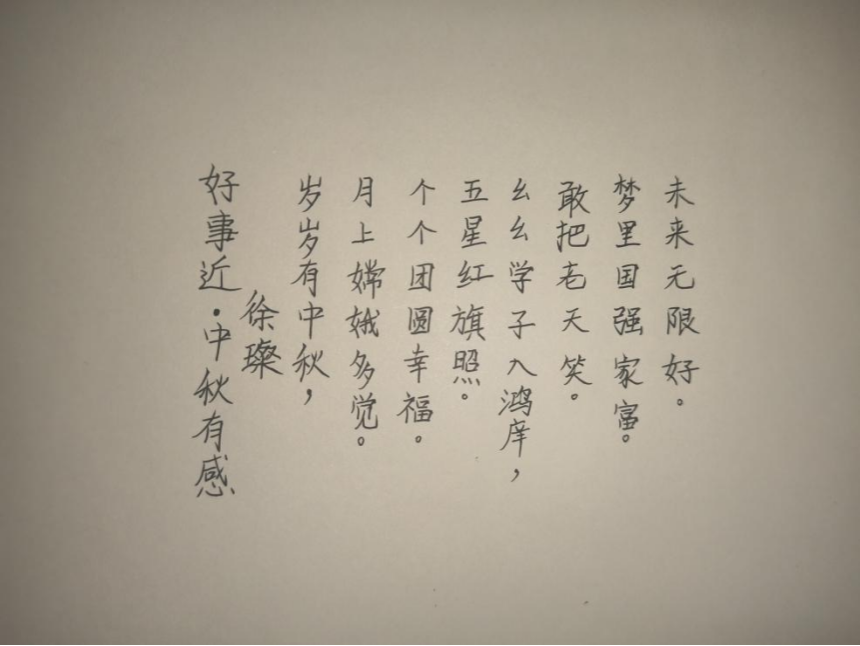 好事近·中秋有感
徐璨
岁岁有中秋，
月上嫦娥多觉。
个个团圆幸福。
五星红旗照。
幺幺学子入鸿庠，
敢把老天笑。
梦里国强家富。
未来无限好。